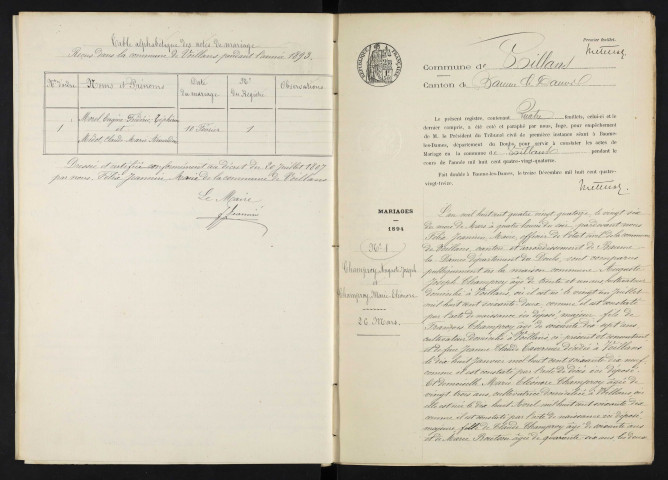 Table alphabétique des actes de mariage
Reçus dans la commune de Voillans pendant l'année 1893.
N° d'ordre
Noms et Prénoms
Date du mariage
N° du Registre
Observations
Morel Eugène Frédéric
et
1
11 Février
1
Dressé et certifié conformément au décret du 20 Juillet 1807
par nous, Félix Jeannin Maire de la commune de Voillans
Le Maire
Jeannin
Premier feuillet.
Commune de Voillans
Canton de Baume les Dames
Le présent registre, contenant quatre feuillets, celui-ci et le
dernier compris, a été coté et paraphé par nous, Juge, pour empêchement
de M. le Président du Tribunal civil de première instance séant à Baume-
les-Dames, département du Doubs, pour servir à constater les actes de
Mariage en la commune de Voillans pendant le
cours de l'année mil huit cent quatre-vingt-quatorze.
Fait double à Baume-les-Dames, le treize Décembre mil huit cent quatre-
vingt-treize.
MARIAGES
1894
N° 1
Champroy August Joseph
et
Champroy Marie Eléonore
26 Mars.
L'an mil huit cent quatre vingt quatorze, le vingt six
du mois de Mars à quatre heures du soir, pardevant nous
Félix Jeannin Maire, officier de l'état civil de la commune
de Voillans, canton et arrondissement de Baume
les Dames département du Doubs, sont comparus
publiquement en la maison commune Auguste
Joseph Champroy âgé de trente et un ans cultivateur
domicilié à Voillans où il est né le vingt un juillet
mil huit cent soixante deux comme il est constaté
par l'acte de naissance ici déposé majeur fils de
François Champroy âgé de soixante dix sept ans
cultivateur domicilié à Voillans ici présent et consentant
et de feue Jeanne Claude décédée à Voillans
le dix huit Janvier mil huit cent soixante dix neuf
comme il est constaté par l'acte de décès ici déposé
Et demoiselle Marie Eléonore Champroy âgée de
vingt trois ans, cultivatrice domiciliée à Voillans où
elle est née le dix huit Avril mil huit cent soixante dix
comme il est constaté par l'acte de naissance ici déposé
majeure fille de Claude Champroy âgé de soixante ans
et de Marie âgée de quarante